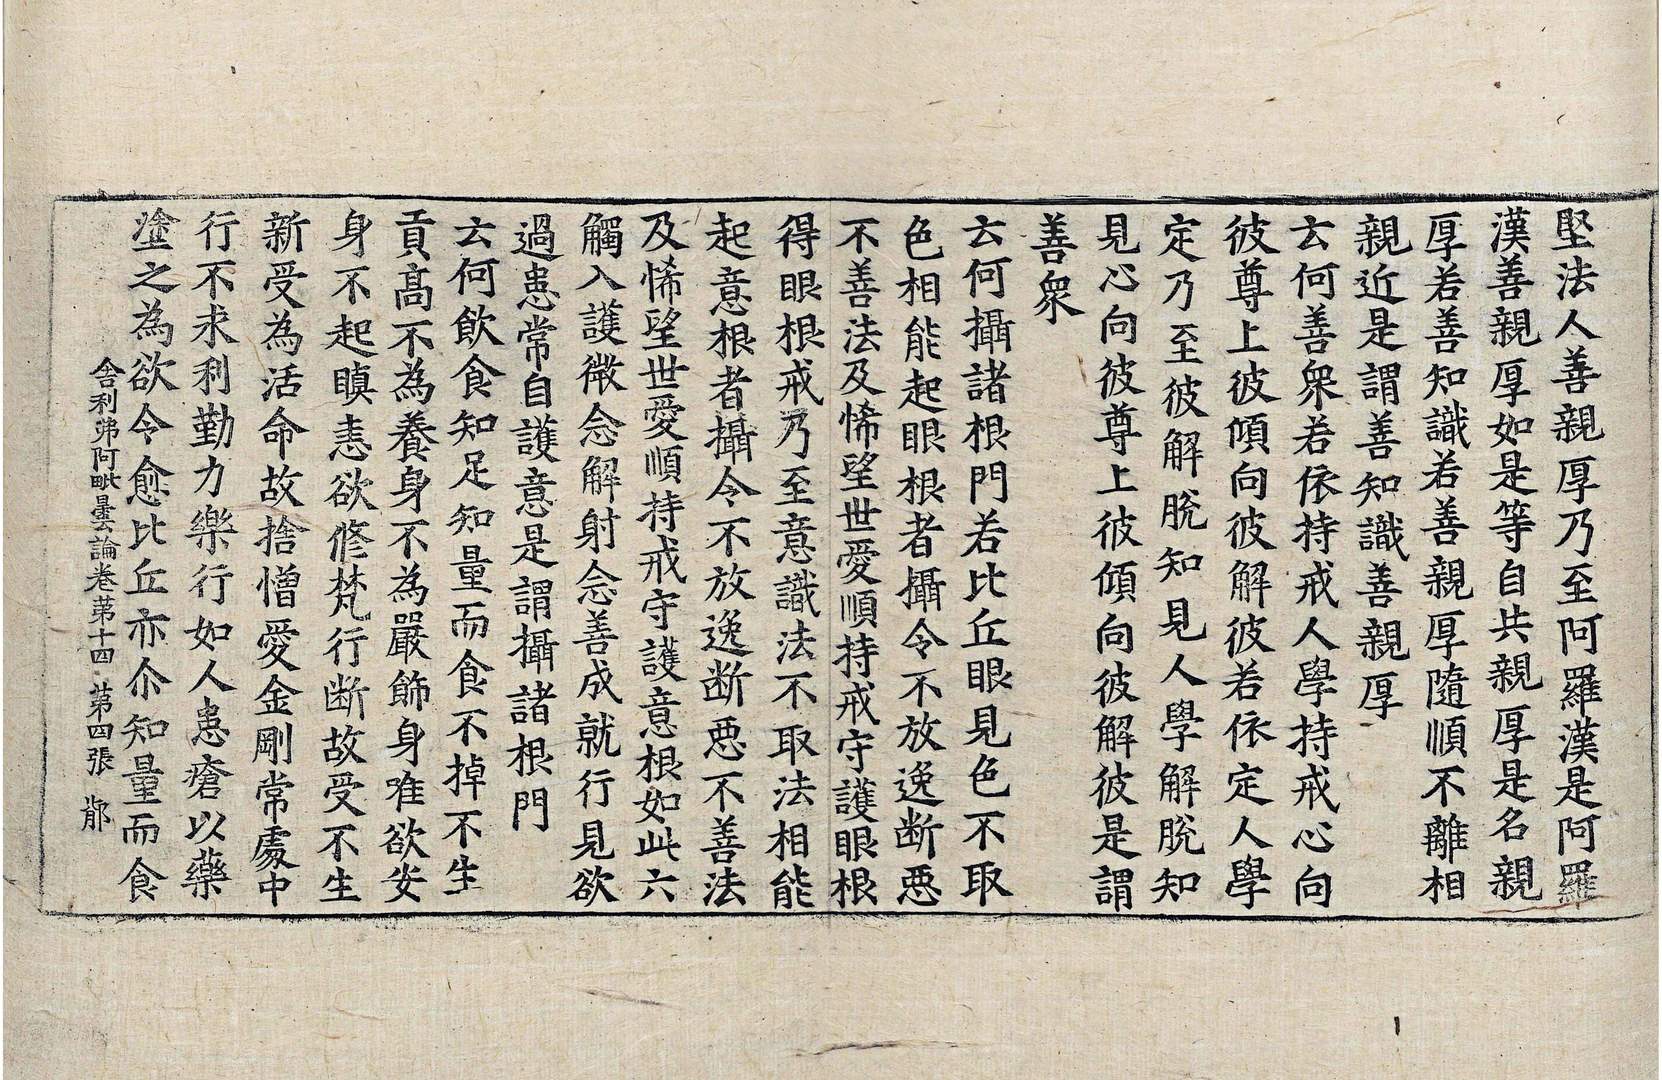 堅法人善親厚乃至阿羅漢是阿羅
漢善親厚如是等自共親厚是名親
厚若善知識若善親厚隨順不離相
親近是謂善知識善親厚
云何善衆若依持戒人學持戒心向
彼尊上彼傾向彼解彼若依定人學
定乃至彼解脫知見人學解脫知
見心向彼尊上彼傾向彼解彼是謂
善衆
云何攝諸根門若比丘眼見色不取
色相能起眼根者攝令不放逸断惡
不善法及悕望世愛順持戒守護眼根
得眼根戒乃至意識法不取法相能
起意根者攝令不放逸断惡不善法
及悕望世愛順持戒守護意根如此六
觸入護微念解射念善成就行見欲
過患常自護意是謂攝諸根門
云何飲食知足知量而食不掉不生
貢高不為養身不為嚴飾身唯欲安
身不起瞋恚欲修梵行断故受不生
新受為活命故捨憎愛金剛常處中
行不求利勤力樂行如人患瘡以藥
塗之為欲令愈比丘亦尒知量而食
舍利弗阿毗曇論卷第十四 第四張